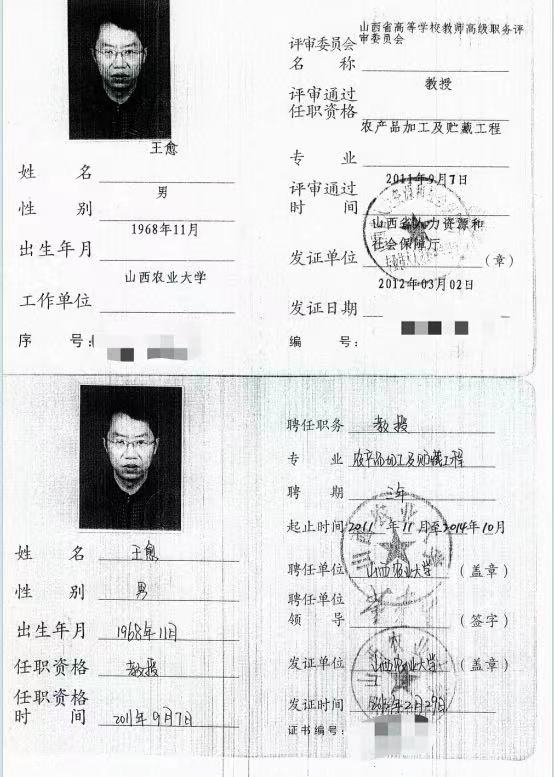 王愈
姓 名
男
性 别
1968年11月
出生年月
山西农业大学
工作单位
序 号:
山西省高等学校教师高级职务评
审委员会
评审委员会
名 称
教授
评审通过
任职资格
农产品加工及贮藏工程
专 业
2011年9月7日
评审通过
时 间
山西省人力资源和
社会保障厅
发证单位 (章)
2012年03月02日
发证日期
编 号:
姓 名 王愈
性 别 男
出生年月 1968年11月
任职资格 教授
任职资格
时 间 2011年9月7日
聘任职务 教授
专 业 农产品加工及贮藏工程
聘 期 三年
起止时间 2011年11月至2014年10月
聘任单位 山西农业大学 (盖章)
聘任单位
领 导 (签字)
发证单位 山西农业大学 (盖章)
发证时间 2012年2月29日
证书编号: